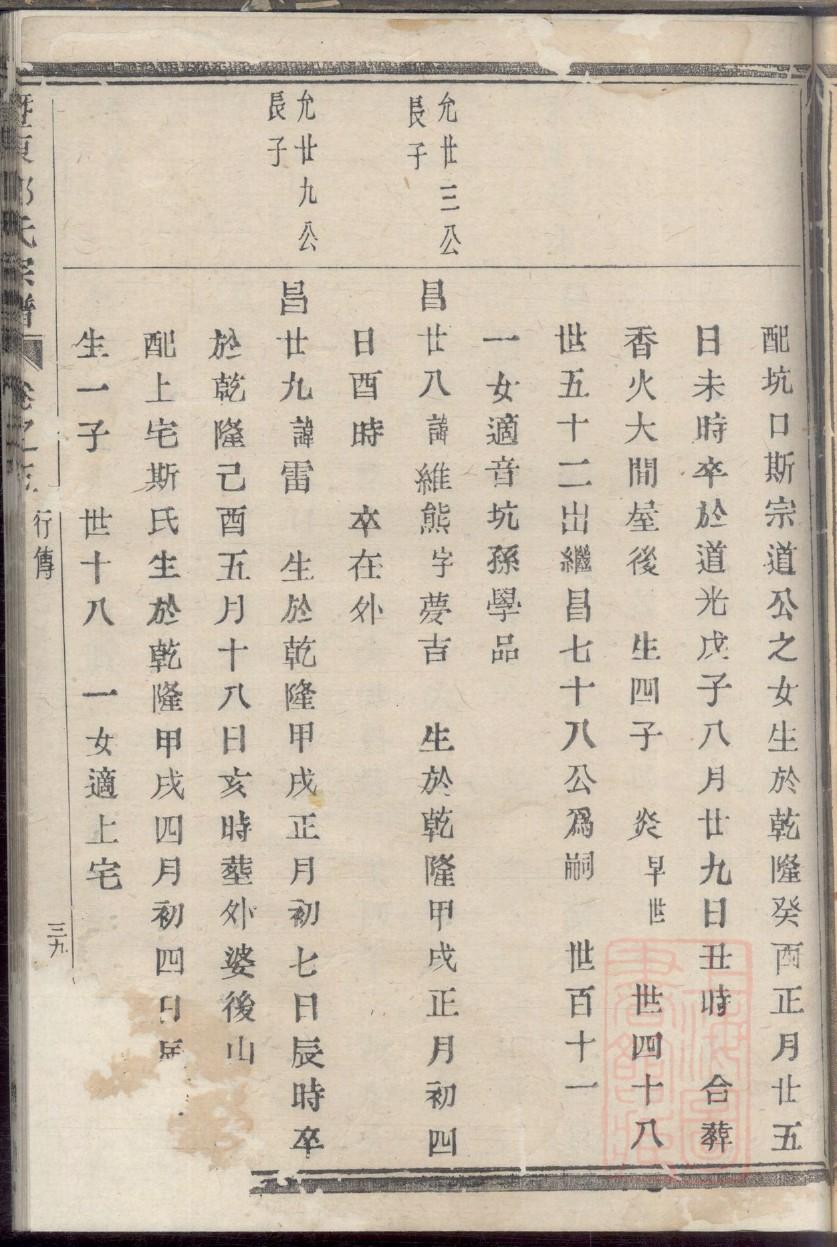 配坑口斯宗道公之女生於乾隆癸酉正月廿五
日未時卒於道光戊子八月廿九日丑時 合葬
香火大間屋後 生四子 炎早世 世四十八
世五十二出繼昌七十八公爲嗣 世百十一
一女適音坑孫學品
允廿三公
長子
昌廿八諱維熊字夢吉 生於乾隆甲戌正月初四
日酉時 卒在外
允廿九公
長子
昌廿九諱雷 生於乾隆甲戌正月初七日辰時卒
於乾隆己酉五月十八日亥時塟外婆後山
配上宅斯氏生於乾隆甲戌四月初四日
生一子 世十八 一女適上宅
氏宗譜 卷之 行傳 三九